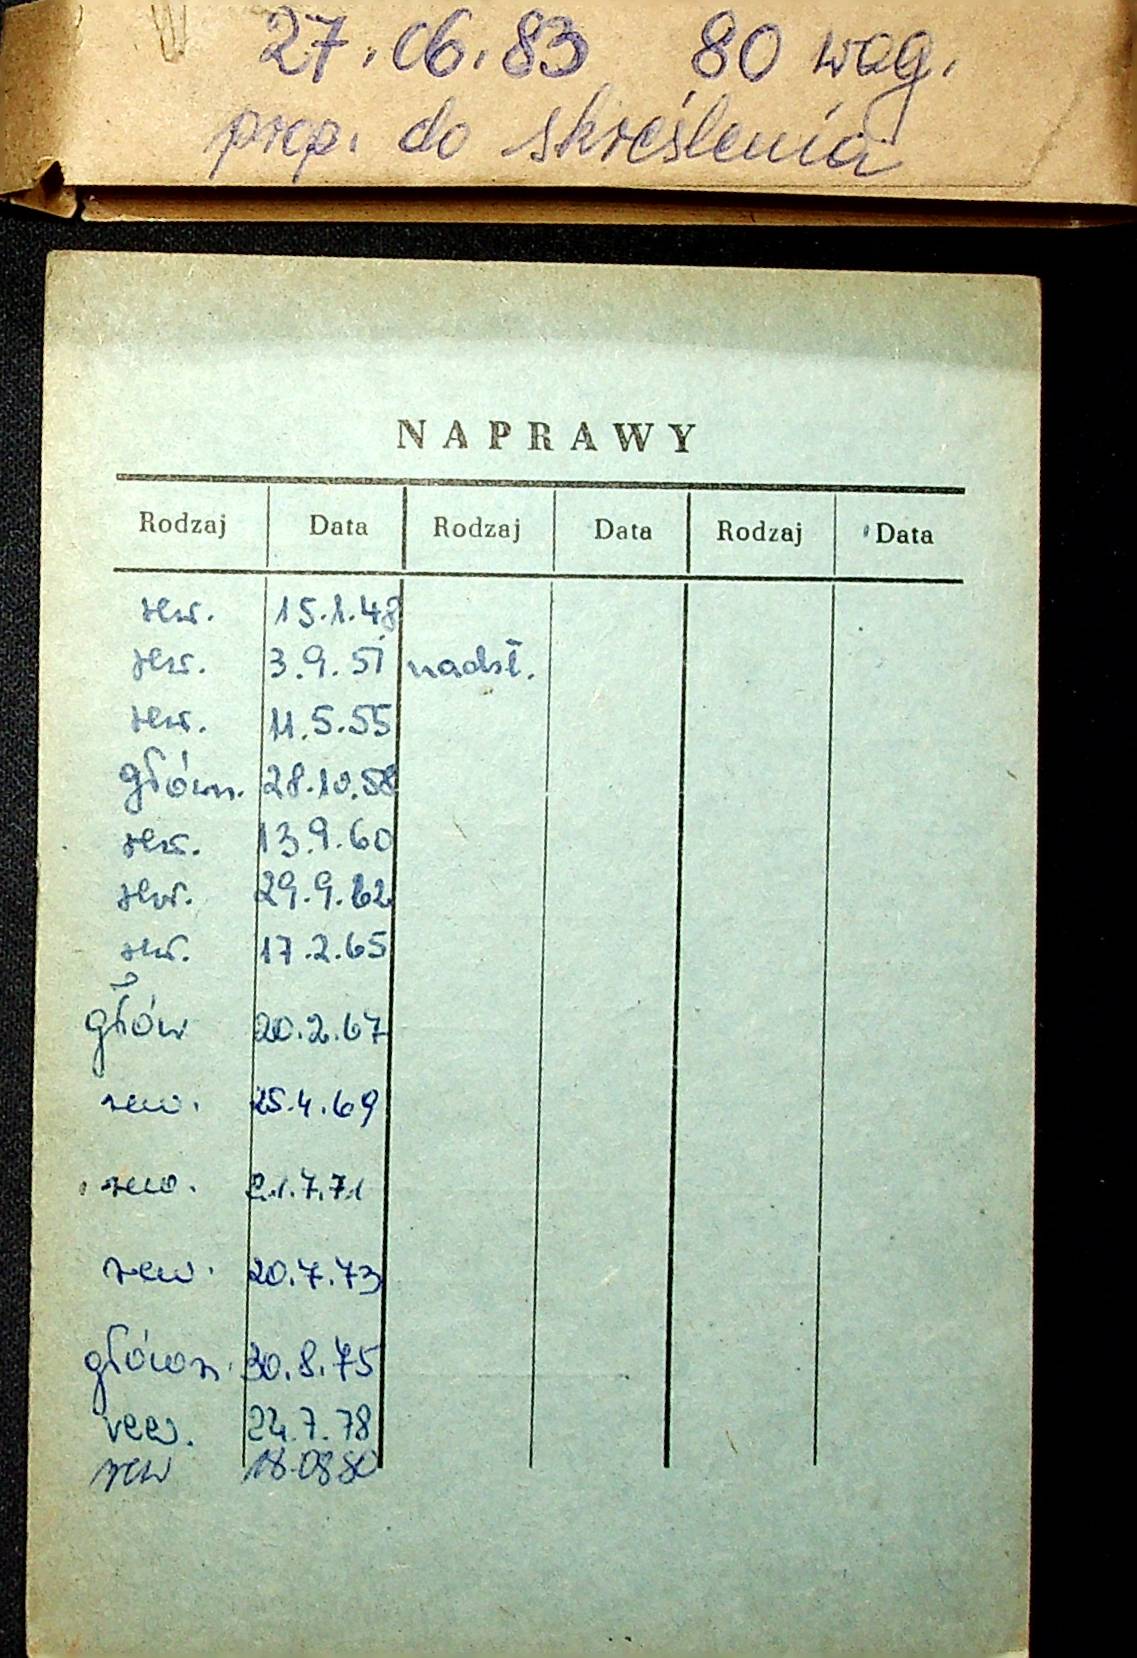 27.06.83 80 wag.
prop. do skreślenia
NAPRAWY
Rodzaj Data Rodzaj Data Rodzaj Data
rew. 15.1.48
rew. 3.9.51 nadst.
rew. 11.5.55
główn. 28.10.58
rew. 13.9.60
rew. 29.9.62
rew. 17.2.65
głów 20.2.67
rew. 25.4.69
rew. 21.7.71
rew. 20.7.73
główn. 30.8.75
rew. 24.7.78
rew 18.08.80